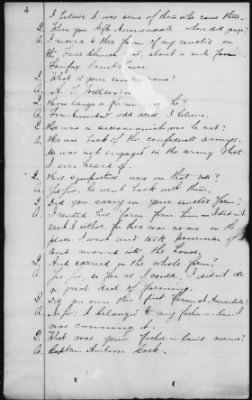 4
I believe it was some of them who came there.
Q. When you left Annandale where did you go?
A. I moved to this farm of my uncle's on
the Falls Church road, about a mile from
Fairfax Court House.
Q. What is your uncle's name?
A. H. T.
Q. How large a farm had he?
A. Four hundred odd acres I believe.
Q. He was a secessionist was he not?
A. He was back of the confederate army;
he was not engaged in the army that
I ever heard of.
Q. His sympathies was on that side?
A. Yes sir, he went back with them.
Q. Did you carry on your uncle's farm?
A. I rented his farm from him—I didn't
rent it either for there was no one on the
place. I went and took possession of it
and moved into the house.
Q. And carried on the whole farm?
A. Yes, sir, so far as I could. I didn't do
a great deal of farming.
Q. Did you own this first farm at Annandale?
A. No sir; it belonged to my father-in-law. I
was running it.
Q. What was your father-in-law's name?
A. Captain Cock.